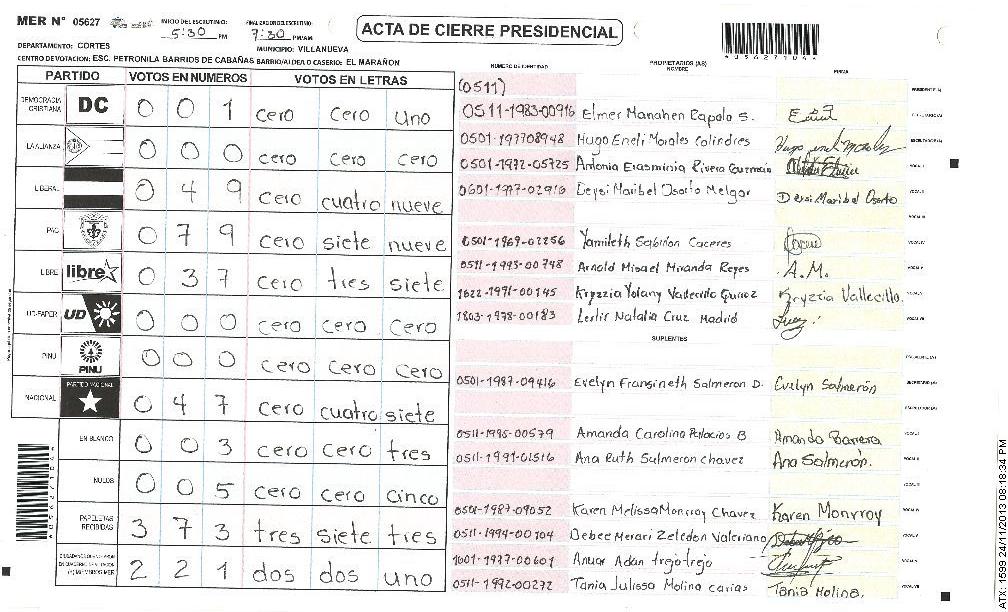 MER N° 05627
INICIO DEL ESCRUTINIO: 5:30 PM
FINALIZACION DEL ESCRUTINIO: 7:30 PM/AM
ACTA DE CIERRE PRESIDENCIAL
DEPARTAMENTO: CORTES
MUNICIPIO: VILLANUEVA
CENTRO DE VOTACION: ESC. PETRONILA BARRIOS DE CABAÑAS BARRIO/ALDEA O CASERIO: EL MARAÑON
PARTIDO VOTOS EN NUMEROS VOTOS EN LETRAS
DEMOCRACIA CRISTIANA DC 0 0 1 cero cero uno
LA ALIANZA 0 0 0 cero cero cero
LIBERAL 0 4 9 cero cuatro nueve
PAC 0 7 9 cero siete nueve
LIBRE libre 0 3 7 cero tres siete
UD-FAPER UD 0 0 0 cero cero cero
PINU PINU 0 0 0 cero cero cero
NACIONAL PARTIDO NACIONAL 0 4 7 cero cuatro siete
EN BLANCO 0 0 3 cero cero tres
NULOS 0 0 5 cero cero cinco
PAPELETAS RECIBIDAS 3 7 3 tres siete tres
2 2 1 dos dos uno
NUMERO DE IDENTIDAD PROPIETARIOS (AS) NOMBRE FIRMA
(0511)
0511-1983-00916 Elmer Manahen Rapalo S.
0501-197708948 Hugo Eneli Morales Colindres
0501-1972-05725 Antonia Erasminia Rivera Guzmán
0601-1977-02916 Deysi Maribel Osorto Melgar Deysi Maribel Osorto
0501-1969-02256 Yamileth Sabiñon Caceres
0511-1993-00748 Arnold Misael Miranda Reyes A.M.
1622-1991-00145 Kryzzia Yolany Vallecillo Kryzzia Vallecillo
1803-1978-00183 Leslir Natalia Cruz Madrid
SUPLENTES
0501-1987-09416 Evelyn Fransineth Salmeron D. Evelyn Salmerón
0511-1995-00579 Amanda Carolina Pallacios B
0511-1991-01516 Ana Ruth Salmeron chavez Ana Salmerón.
0501-1987-09052 Karen Melissa Monrroy Chavez Karen Monrroy
0511-1994-00104 Debee Merari Zeledon Valeriano
1601-1977-00601 Anuar Adan trejo trejo
0511-1992-00272 Tania Julissa Molina Carias Tania Molina.
ATX: 1599 24/11/2013 08:18:34 PM